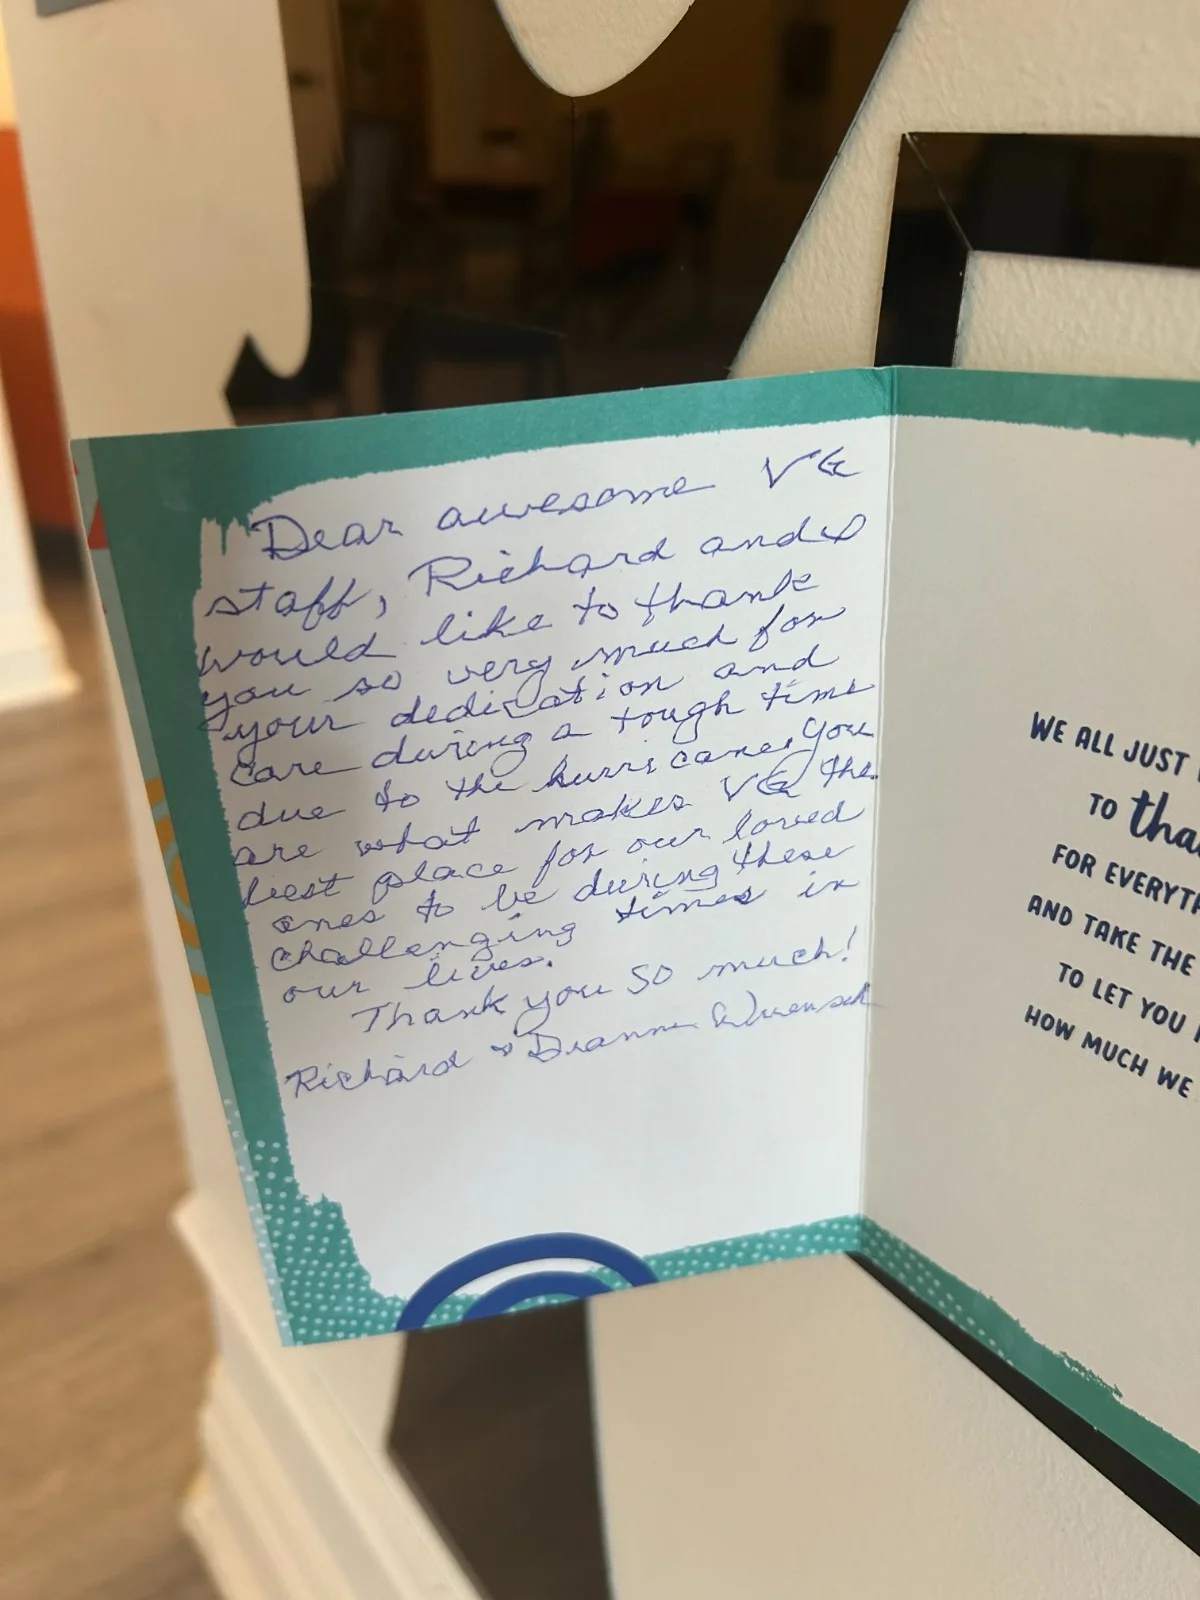 Dear awesome VG
staff, Richard and I
would like to thank
you so very much for
your dedication and
care during a tough time
due to the hurricane. You
are what makes VG the
best place for our loved
ones to be during these
challenging times in
our lives.
Thank you so much!
Richard & Deanna
WE ALL JUST
TO
FOR
AND TAKE THE
TO LET YOU
HOW MUCH WE